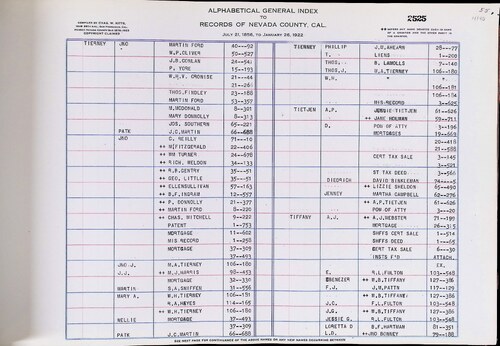 ALPHABETICAL GENERAL INDEX
TO
RECORDS OF NEVADA COUNTY, CAL.
JULY 21, 1856, TO JANUARY 26, 1922
COPYRIGHT CLAIMED
2525
TIERNEY JNO MARTIN FORD 40---92
W.P. OLIVER 50---527
J.B. DONLAN 24---541
P. YORE 15---193
W.H.V. CRONISE 21---44
21---261
THOS. FINDLEY 23---188
MARTIN FORD 53---357
M. MCDONALD 8---301
MARY DONNOLLY 8---313
JOS. SOUTHERN 65---221
PATK J.C. MARTIN 66---688
JNO C. REILLY 71---10
++ M. FITZGERALD 22---406
++ WM TURNER 24---678
++ RICH. WELDON 34---133
++ R.B. GENTRY 35---51
++ GEO. LITTLE 35---51
++ ELLEN SULLIVAN 57---163
++ B.F. INGRAM 12---557
++ P. DONNOLLY 21---377
++ MARTIN FORD 8---226
++ CHAS. MITCHELL 9---222
PATENT 1---753
MORTGAGE 11---602
HIS RECORD 1---258
MORTGAGE 37---309
37---493
JNO J. M.A. TIERNEY 106---180
J.J. ++ M.J. HARRIS 106---453
MORTGAGE 32---330
MARTIN S.A. SNIFFEN 31---556
MARY A. W.H. TIERNEY 106---181
R.A. HAYES 114---165
++ W.H. TIERNEY 106---180
NELLIE MORTGAGE 37---493
37---309
PATK J.C. MARTIN 66---688
TIERNEY PHILLIP J.U. AHEARN 28---77
T. LIENS 1---209
THOS. B. LAMOLLS 7---140
THOS. J. M.A. TIERNEY 106---180
W.H. 
106---181
106---184
HIS RECORD 3---625
TIETJEN A.P. JENNIE TIETJEN 61---626
++ JANE HOLMAN 59---711
D. POW OF ATTY 3---196
MORTGAGES 19---669
20---418
21---588
CERT TAX SALE 3---145
3---521
ST TAX DEED 3---566
DIEDRICH DAVID BINKLEMAN 74---5
++ LIZZIE SHELDON 65---490
JENNEY MARTHA CAMPBELL 62---276
++ A.P. TIETJEN 61---626
POW OF ATTY 3---20
TIFFANY A.J. ++ A.J. WEBSTER 71---199
MORTGAGE 26---315
SHFFS CERT SALE 1---514
SHFFS DEED 1---65
CERT TAX SALE 6---30
INSTS F'D ATTACH.
EX.
E. R.L. FULTON 103---548
EBENEZER ++ W.B. TIFFANY 127---386
F.J. J.M. PATTN 117---129
++ W.B. TIFFANY 127---386
J.C. F.L. FULTON 103---548
J.G. ++ W.B. TIFFANY 127---386
JESSIE G. R.L. FULTON 103---548
LORETTA D B.F. HARTMAN 81---351
L.R. ++ JNO BONNEY 79---188
SEE NEXT PAGE FOR CONTINUANCE OF THE ABOVE NAMES OR ANY NEW NAMES REGARDING SEVERED